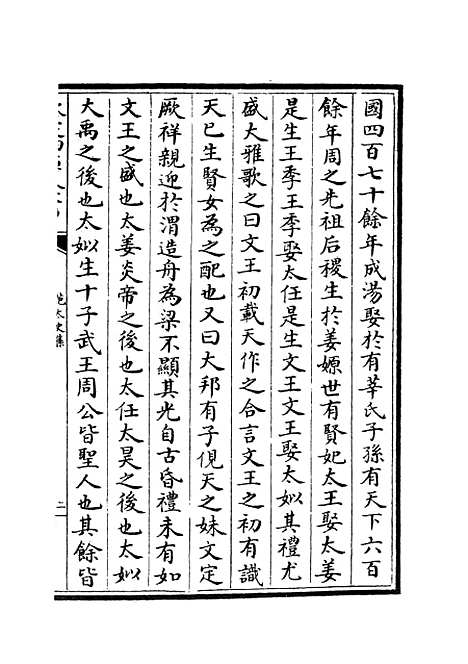 國四百七十餘年成湯娶於有莘氏子孫有天下六百
餘年周之先祖后稷生於姜嫄世有賢妃太王娶太姜
是生王季王季娶太任是生文王文王娶太姒其禮尤
盛大雅歌之曰文王初載天作之合言文王之初有識
天已生賢女為之配也又曰大邦有子俔天之妹文定
厥祥親迎於渭造舟為梁不顯其光自古昏禮未有如
文王之盛也太姜炎帝之後也太任太昊之後也太姒
大禹之後也太姒生十子武王周公皆聖人也其餘皆
范太史集
二